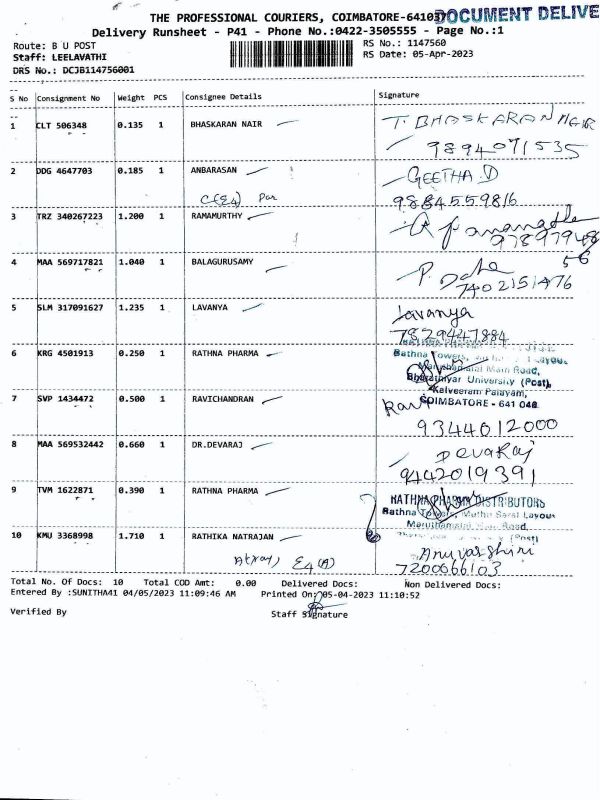 THE PROFESSIONAL COURIERS, COIMBATORE-641037
DOCUMENT DELIVE
Delivery Runsheet - P41 - Phone No.:0422-3505555 - Page No.:1
Route: B U POST
RS No.: 1147560
Staff: LEELAVATHI
RS Date: 05-Apr-2023
DRS No.: DCJB114756001
S No Consignment No Weight PCS Consignee Details Signature
1 CLT 506348 0.135 1 BHASKARAN NAIR T. BHASKARAN NAIR
9894071535
2 DDG 4647703 0.185 1 ANBARASAN GEETHA D
C(E4) Par 9884559816
3 TRZ 340267223 1.200 1 RAMAMURTHY
97897948
56
4 MAA 569717821 1.040 1 BALAGURUSAMY P.
7402151476
5 SLM 317091627 1.235 1 LAVANYA Lavanya
7829447884
6 KRG 4501913 0.250 1 RATHNA PHARMA
Rathna Towers, Layout
Maruthamalai Main Road,
Bharathiyar University (Post),
Kalveeram Palayam,
7 SVP 1434472 0.500 1 RAVICHANDRAN Ravi COIMBATORE - 641 046
9344012000
8 MAA 569532442 0.660 1 DR.DEVARAJ Devaraj
9442019391
9 TVM 1622871 0.390 1 RATHNA PHARMA RATHNA PHARM DISTRIBUTORS
Rathna Towers, Muthu Layout
Maruthamalai Main Road,
(Post)
10 KMU 3368998 1.710 1 RATHIKA NATRAJAN Anuvarshini
E4(A) 7200066103
Total No. Of Docs: 10 Total COD Amt: 0.00 Delivered Docs: Non Delivered Docs:
Entered By :SUNITHA41 04/05/2023 11:09:46 AM Printed On:05-04-2023 11:10:52
Verified By Staff Signature